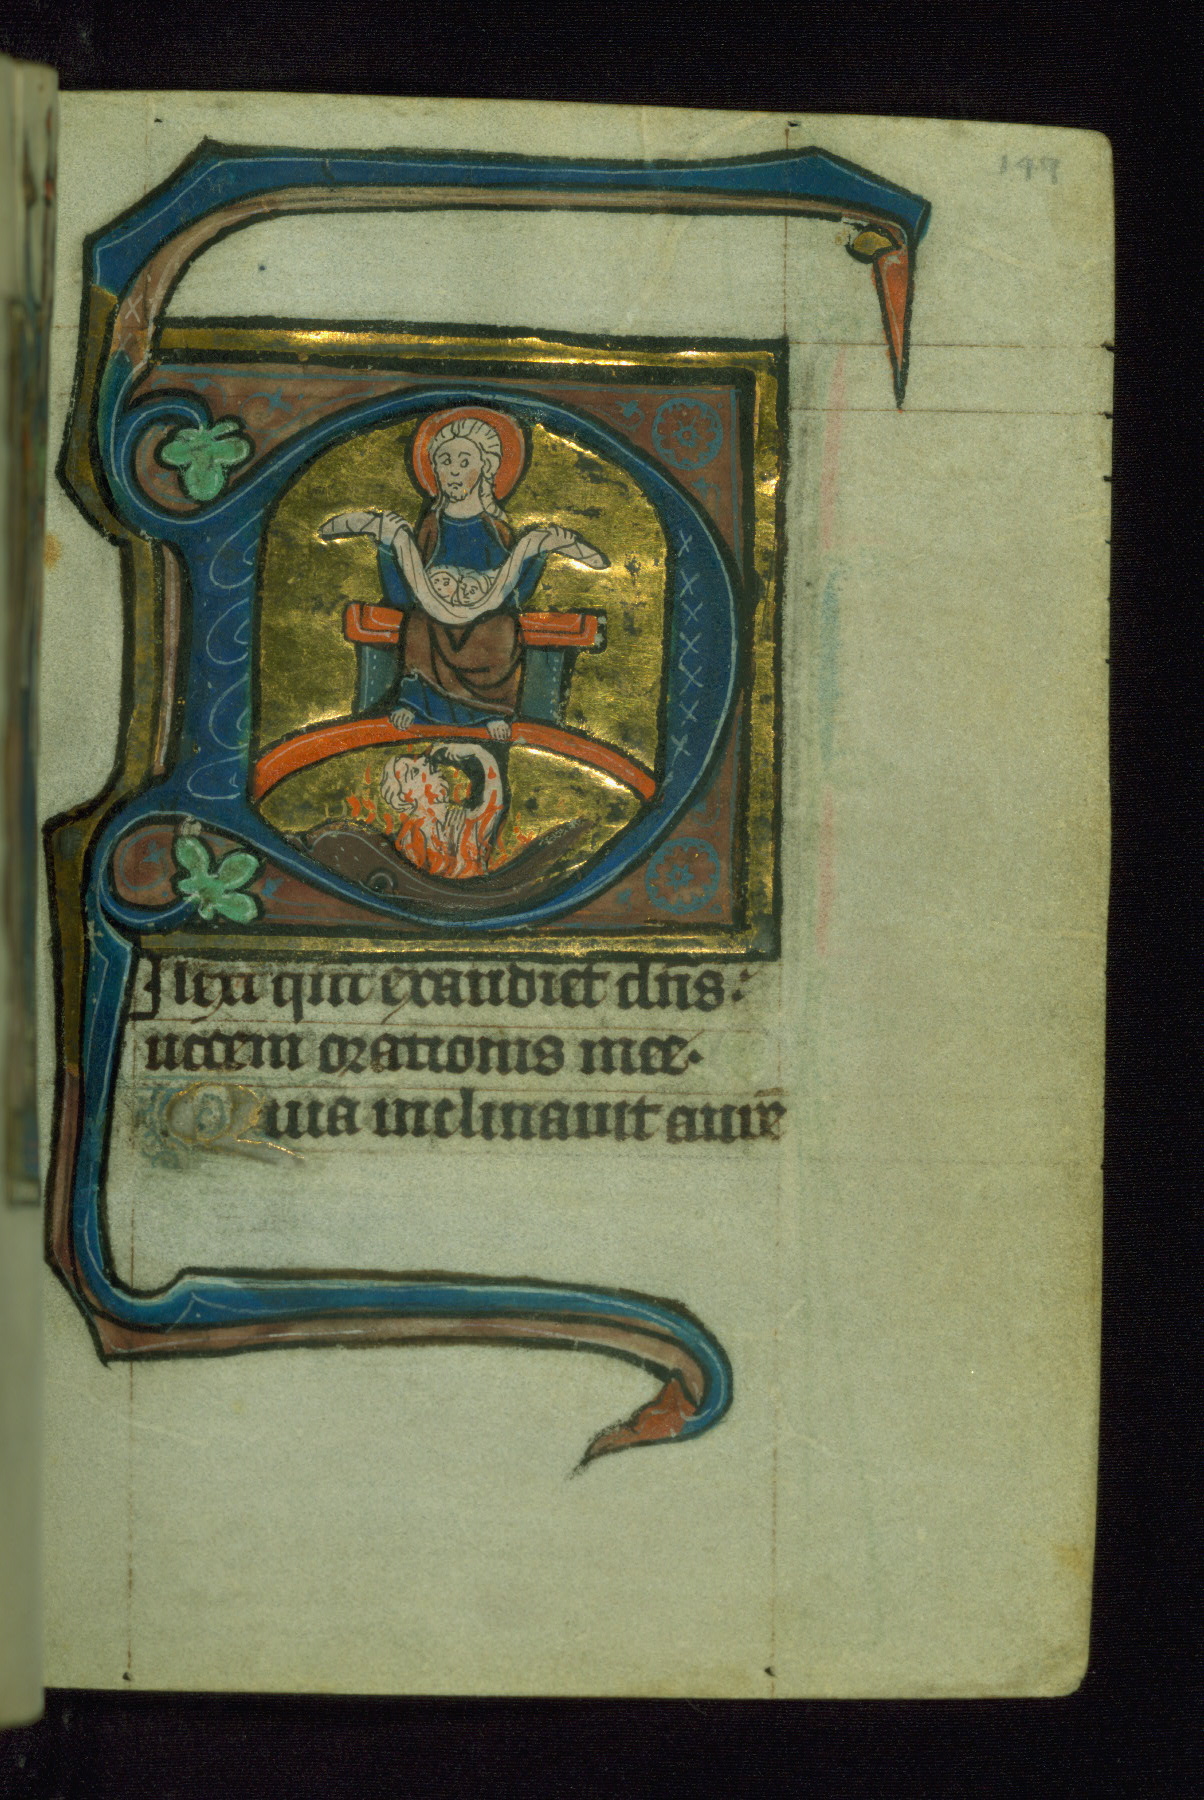 147
Dilexi qm̄ exaudiet dn̄s:
uocem orationis mee.
Quia inclinauit aurē